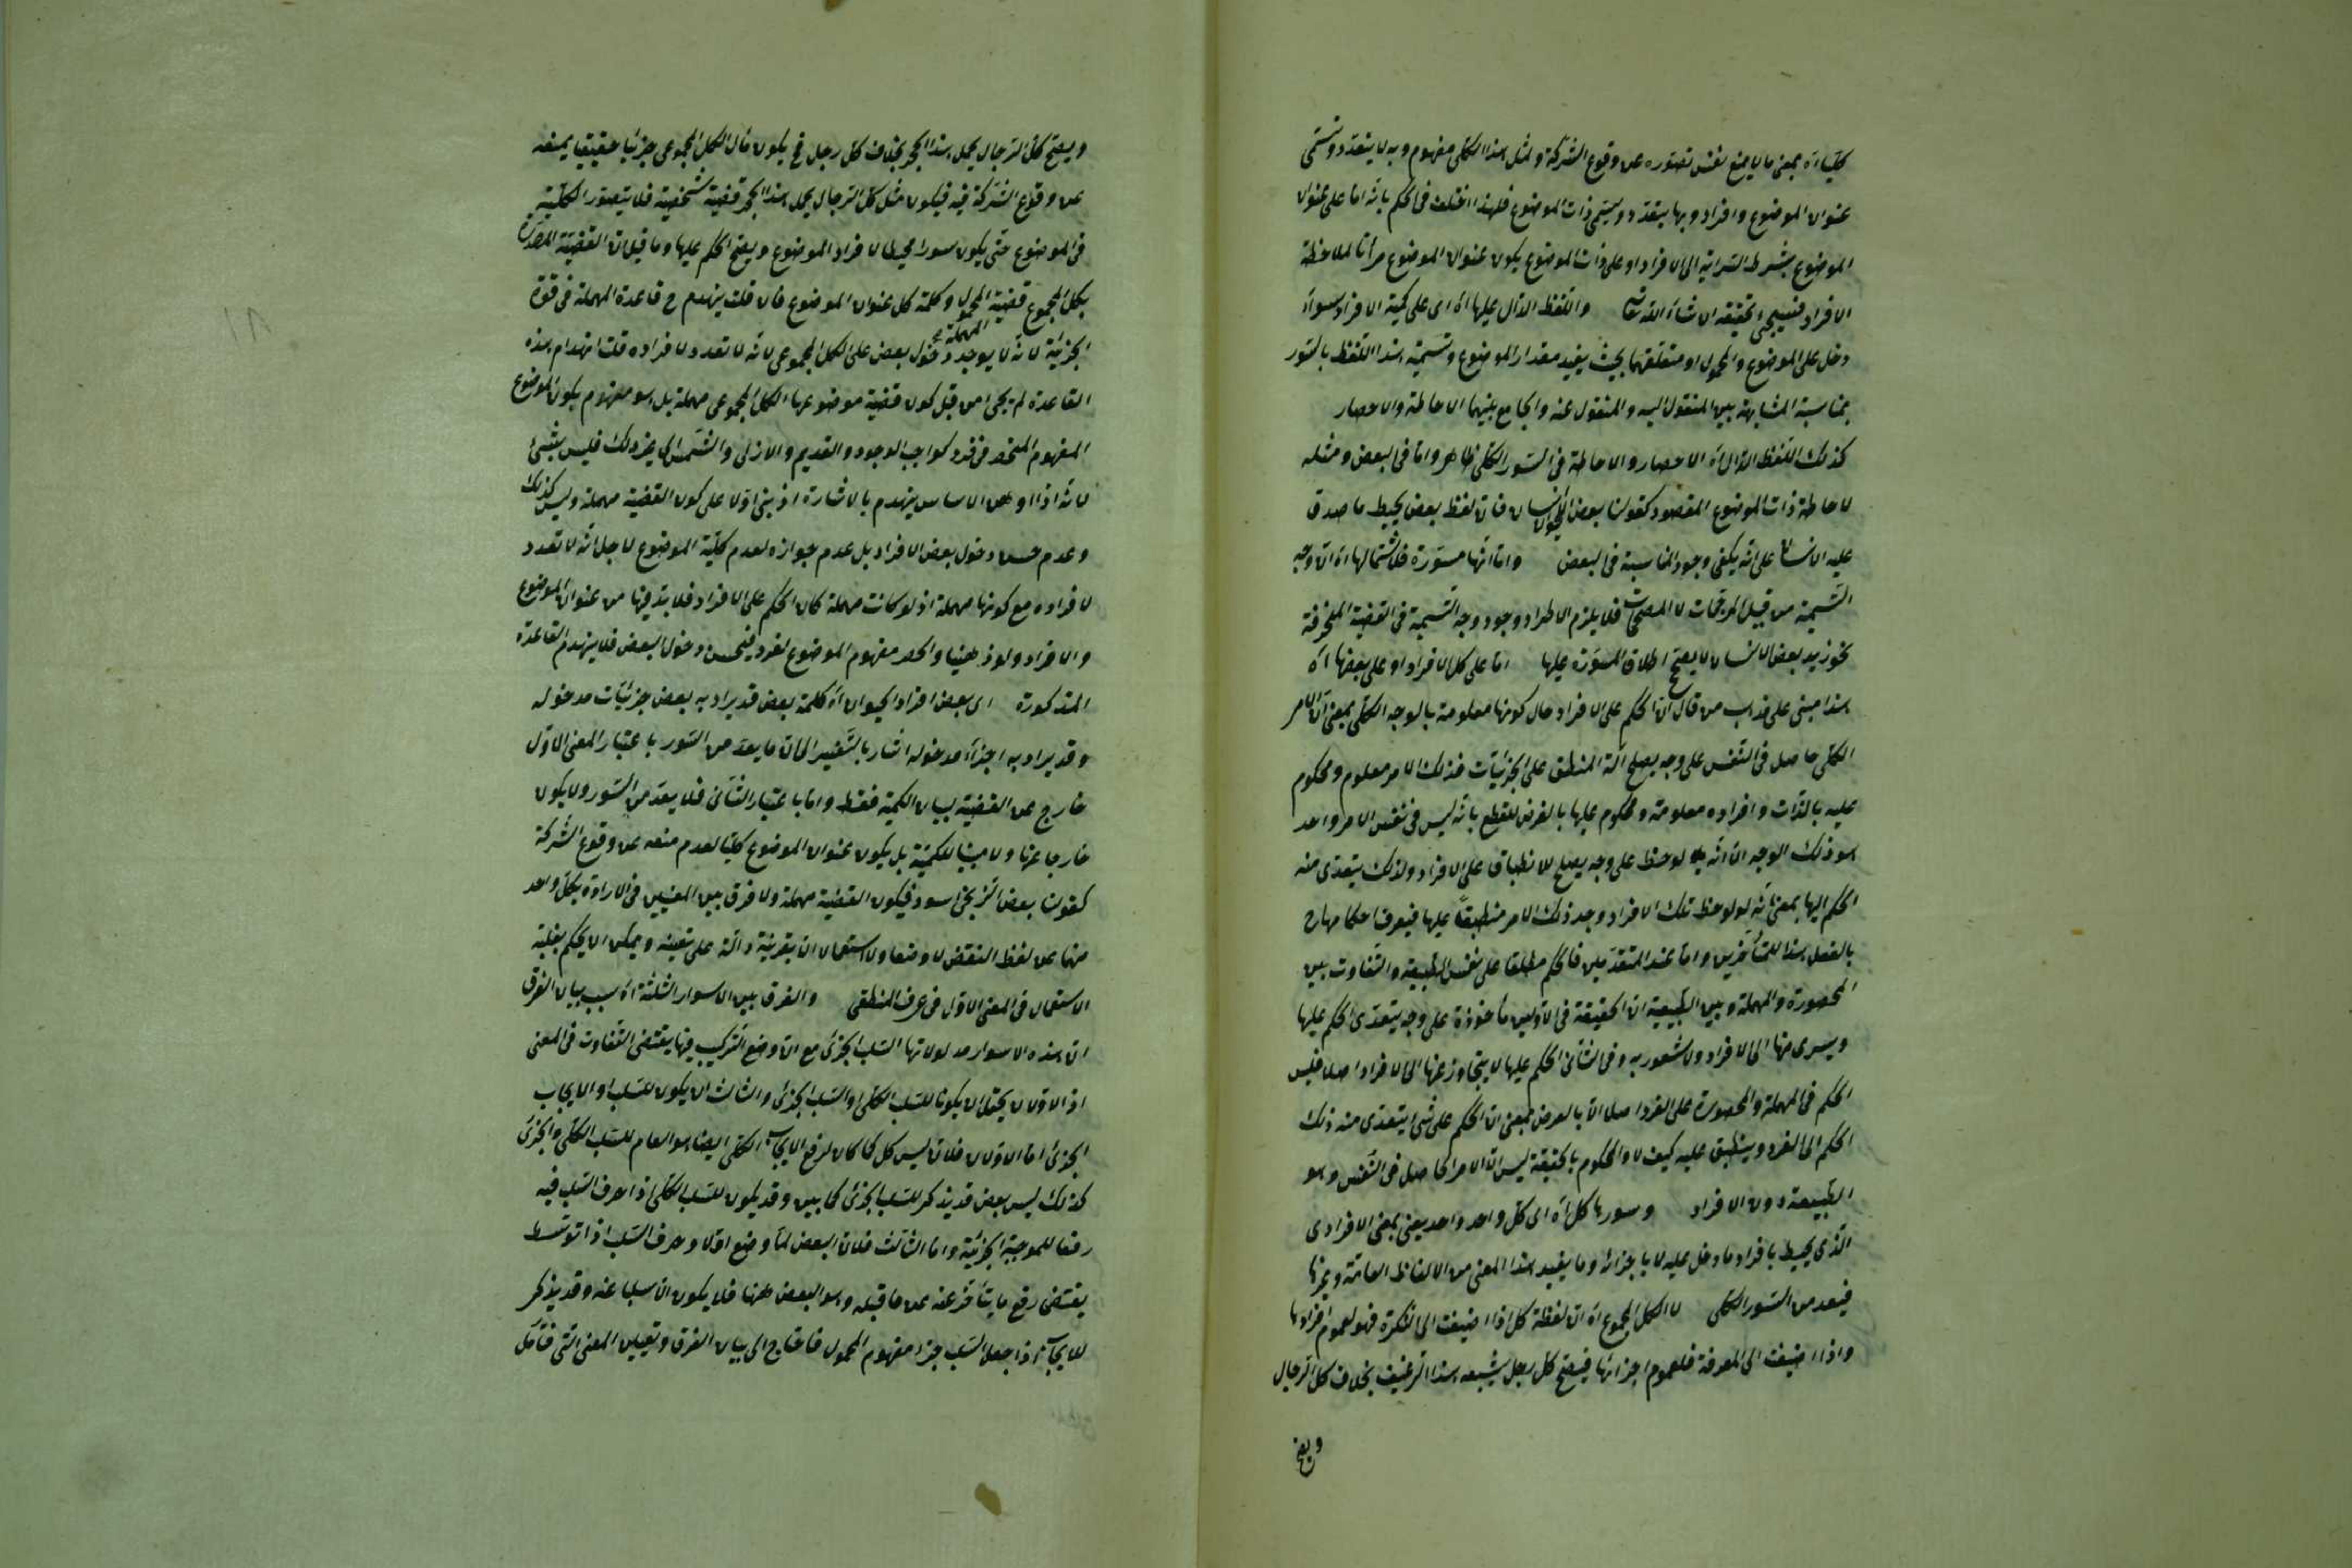 كليا اه بمعنى ما لا يمنع نفس تصوره عن وقوع الشركة ولمثل هذا الكلى مفهوم وبه لا يتعدد وتسمى
عنوان الموضوع وافراد وبها يتعدد ويسمى ذات الموضوع فلهذا اختلف فى الحكم بانه اما على عنوان
الموضوع بشرط السراية الى الافراد او على ذات الموضوع يكون عنوان الموضوع مرأتا لملاحظة
الافراد فسيجئ تحقيقه ان شاء الله تعالى واللفظ الدال عليها اه اى على كمية الافراد سواء
دخل على الموضوع والمحمول او متعلقهما بحيث يفيد مقدار الموضوع وتسمية هذا اللفظ بالسور
بمناسبة المشابهة بين المنقول اليه والمنقول عنه والجامع بينهما الاحاطة والاحصار
كذلك اللفظ الدال اه الاحصار والاحاطة فى السور الكلى ظاهر واما فى البعض ومثله
لاحاطة ذات الموضوع المقصود كقولنا بعض الحيوان انسان فان لفظ بعض يحيط ما صدق
عليه الانسان على انه يكفى وجود المناسبة فى البعض واما انها مسورة فلاشتمالها اه ان وجه
التسمية من قبيل المرجحات لا المصححات فلا يلزم الاطراد وجود وجه التسمية فى القضية المنحرفة
نحو زيد بعض الانسان لا يصح اطلاق المسورة عليها اما على كل الافراد او على بعضها اه
هذا مبنى على مذهب من قال ان الحكم على الافراد حال كونها معلومة بالوجه الكلى بمعنى ان الامر
الكلى حاصل فى النفس على وجه يصلح الة المنطبق على الجزئيات فذلك الامر معلوم ومحكوم
عليه بالذات وافراده معلومة ومحكوم عليها بالعرض للقطع بانه ليس فى نفس الامر واحد
هو ذلك الوجه الا انه لوحظ على وجه يصلح للانطباق على الافراد ولذلك يتعدى منه
الحكم اليها بمعنى انه لو لوحظ تلك الافراد وجد ذلك الامر منطبقا عليها فيعرف احكامها ح
بالفعل هذا للمتأخرين واما عند المتقدمين فالحكم مطلقا على نفس الطبيعة والتفاوت بين
المحصورة والمهملة وبين الطبيعية ان الحقيقة فى الاولين مأخوذة على وجه يتعدى الحكم عليها
ويسرى منها الى الافراد ولا شعور به وفى الثانى الحكم عليها لا يتجاوز عنها الى الافراد اصلا فليس
الحكم فى المهملة والمحصورة على الفرد اصلا الا بالعرض بمعنى ان الحكم على شئ يتعدى منه ذلك
الحكم الى الفرد وينطبق عليه كيف لا والمحكوم بالحقيقة ليس الا الامر الحاصل فى النفس وهو
الطبيعة دون الافراد وسورها كل اه اى كل واحد واحد يعنى بمعنى الافرادى
الذى يحيط بافراد ما دخل عليه لا باجزائه وما يفيد هذا المعنى من الالفاظ العامة وغيرها
فيعد من السور الكلى لا الكل المجموع اه ان لفظة كل اذا اضيفت الى النكرة فهو لعموم افرادها
واذا اضيفت الى المعرفة فلعموم اجزائها فيصح كل رجل يشبعه هذا الرغيف بخلاف كل الرجال
ويصح
ويصح كل الرجال يحمل هذا الحجر بخلاف كل رجل فح يكون مآل الكل المجموعى جزئيا حقيقيا يمنعه
عن وقوع الشركة فيه فيكون مثل كل الرجال يحمل هذا الحجر قضية شخصية فلا يتصور الكلية
فى الموضوع حتى يكون سورا محيطا لافراد الموضوع ويصح الحكم عليها وما قيل ان القضية المصدرة
بكل المجموع قضية المحمول وكلمة كل عنوان الموضوع فان قلت ينهدم ح قاعدة المهملة فى قوة
المهملة
الجزئية لانه لا يوجد دخول بعض على الكل المجموعى لانه لا تعدد لافراده قلت انهدام هذه
القاعدة لم يجئ من قبل كون قضية موضوعها الكل المجموعى مهملة بل هو مفهوم يكون الموضوع
المفهوم المنحصر فى فرد كواجب الوجود والقديم والازلى والشمس الى غير ذلك فليس بشئ
لانه اذا اوهن الاساس ينهدم بالاشارة اذ بنى اولا على كون القضية مهملة وليس كذلك
وعدم حسن دخول بعض الافراد بل عدم جوازه لعدم كلية الموضوع لاجل انه لا تعدد
لافراده مع كونها مهملة اذ لو كانت مهملة كان الحكم على الافراد فلا بد فيها من عنوان الموضوع
والافراد ولو ذهنيا وانحصر مفهوم الموضوع لفرد فيحسن دخول البعض فلا ينهدم القاعدة
المذكورة اى بعض افراد الحيوان اه كلمة بعض قد يراد به بعض جزئيات مدخوله
وقد يراد به اجزاء مدخوله اشار بالتفسير الى ان ما يعد من السور باعتبار المعنى الاول
خارج عن القضية لبيان الكمية فقط واما باعتبار الثانى فلا يعد من السور ولا يكون
خارجا عنها ولا مبينا للكمية بل يكون عنوان الموضوع كليا لعدم منعه عن وقوع الشركة
كقولنا بعض الزنجى اسود فيكون القضية مهملة ولا فرق بين المعنيين فى الارادة بكل واحد
منها عن لفظ البعض لا وضعا ولا استعمالا الا بقرينة دالة على تعينه ويمكن ان يحكم بغلبة
الاستعمال فى المعنى الاول فى عرف المنطقى والفرق بين الاسوار الثلثة اه سبب بيان الفرق
ان هذه الاسوار مدلولاتها السلب الجزئى مع ان وضع التركيب فيها يقتضى التفاوت فى المعنى
اذ الاولان يحتمل ان يكونا للسلب الكلى او السلب الجزئى والثالث ان يكون للسلب او الايجاب
الجزئى اما الاولان فلان ليس كل كما كان لرفع الايجاب الكلى ايضا هو العام للسلب الكلى والجزئى
كذلك ليس بعض قد يذكر للسلب الجزئى كما بين وقد يكون للسلب الكلى اذا حرف السلب فيه
رفعا للموجبة الجزئية واما الثالث فلان البعض لما وضع اولا وحرف السلب اذا توسط
يقتضى رفع ما يتأخر عنه عن ما قبله وهو البعض ههنا فلا يكون الا سلبا عنه وقد يذكر
للايجاب اذا جعل السلب جزء مفهوم المحمول فاحتاج الى بيان الفرق وتعيين المعنى التى فتأمل